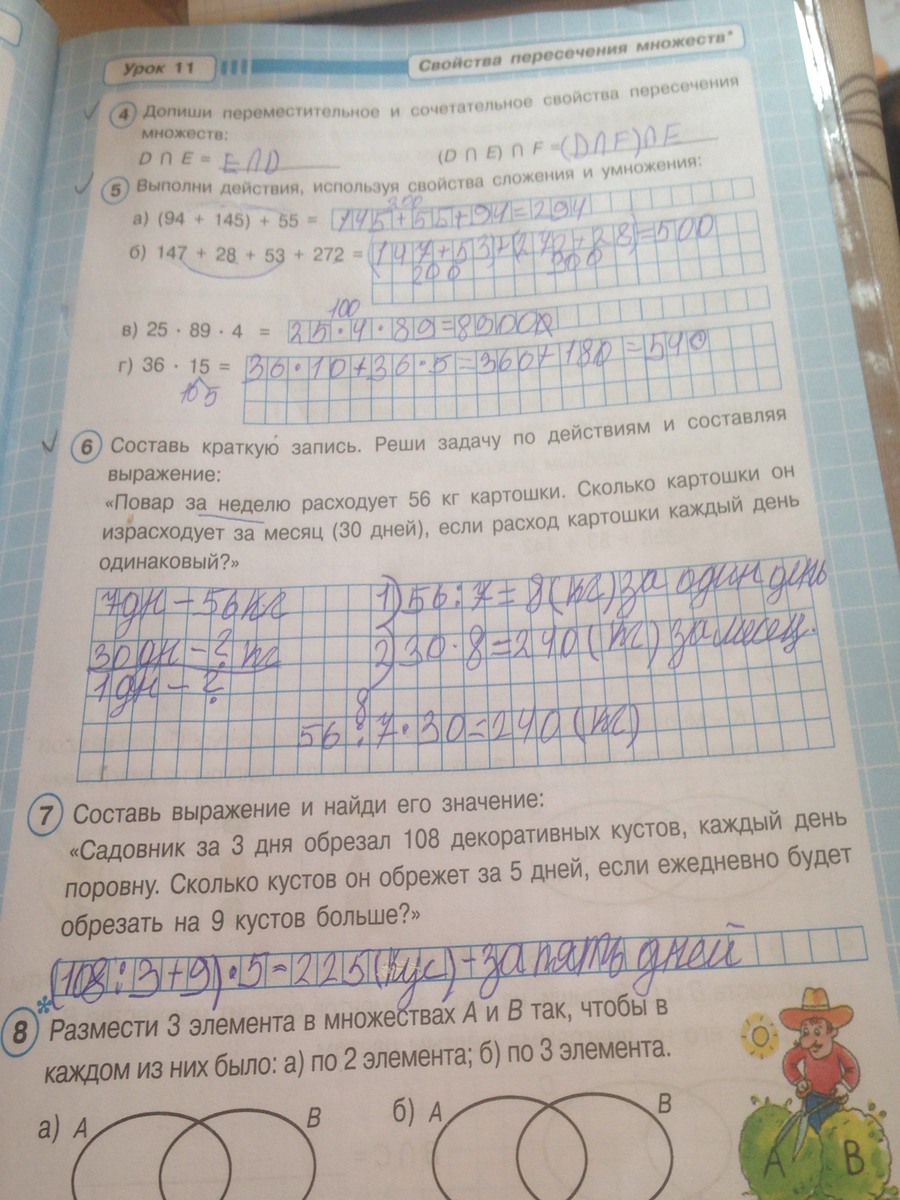 Урок 11
Свойства пересечения множеств*
4 Допиши переместительное и сочетательное свойства пересечения
множеств:
D ∩ E = E∩D (D ∩ E) ∩ F = (D∩F)∩E
5 Выполни действия, используя свойства сложения и умножения:
200
а) (94 + 145) + 55 = 145+55+94=294
б) 147 + 28 + 53 + 272 = (147+53)+(272+28)=500
200 300
100
в) 25 · 89 · 4 = 25·4·89=8900
г) 36 · 15 = 36·10+36·5=360+180=540
10 5
6 Составь краткую запись. Реши задачу по действиям и составляя
выражение:
«Повар за неделю расходует 56 кг картошки. Сколько картошки он
израсходует за месяц (30 дней), если расход картошки каждый день
одинаковый?»
7дн – 56кг 1) 56:7=8(кг) за один день
30дн – ? кг 2) 30·8=240(кг) за месец.
1дн – ?
8
56:7·30=240(кг)
7 Составь выражение и найди его значение:
«Садовник за 3 дня обрезал 108 декоративных кустов, каждый день
поровну. Сколько кустов он обрежет за 5 дней, если ежедневно будет
обрезать на 9 кустов больше?»
(108:3+9)·5=225(кус)-за пять дней
8* Размести 3 элемента в множествах A и B так, чтобы в
каждом из них было: а) по 2 элемента; б) по 3 элемента.
а) A B б) A B
A B